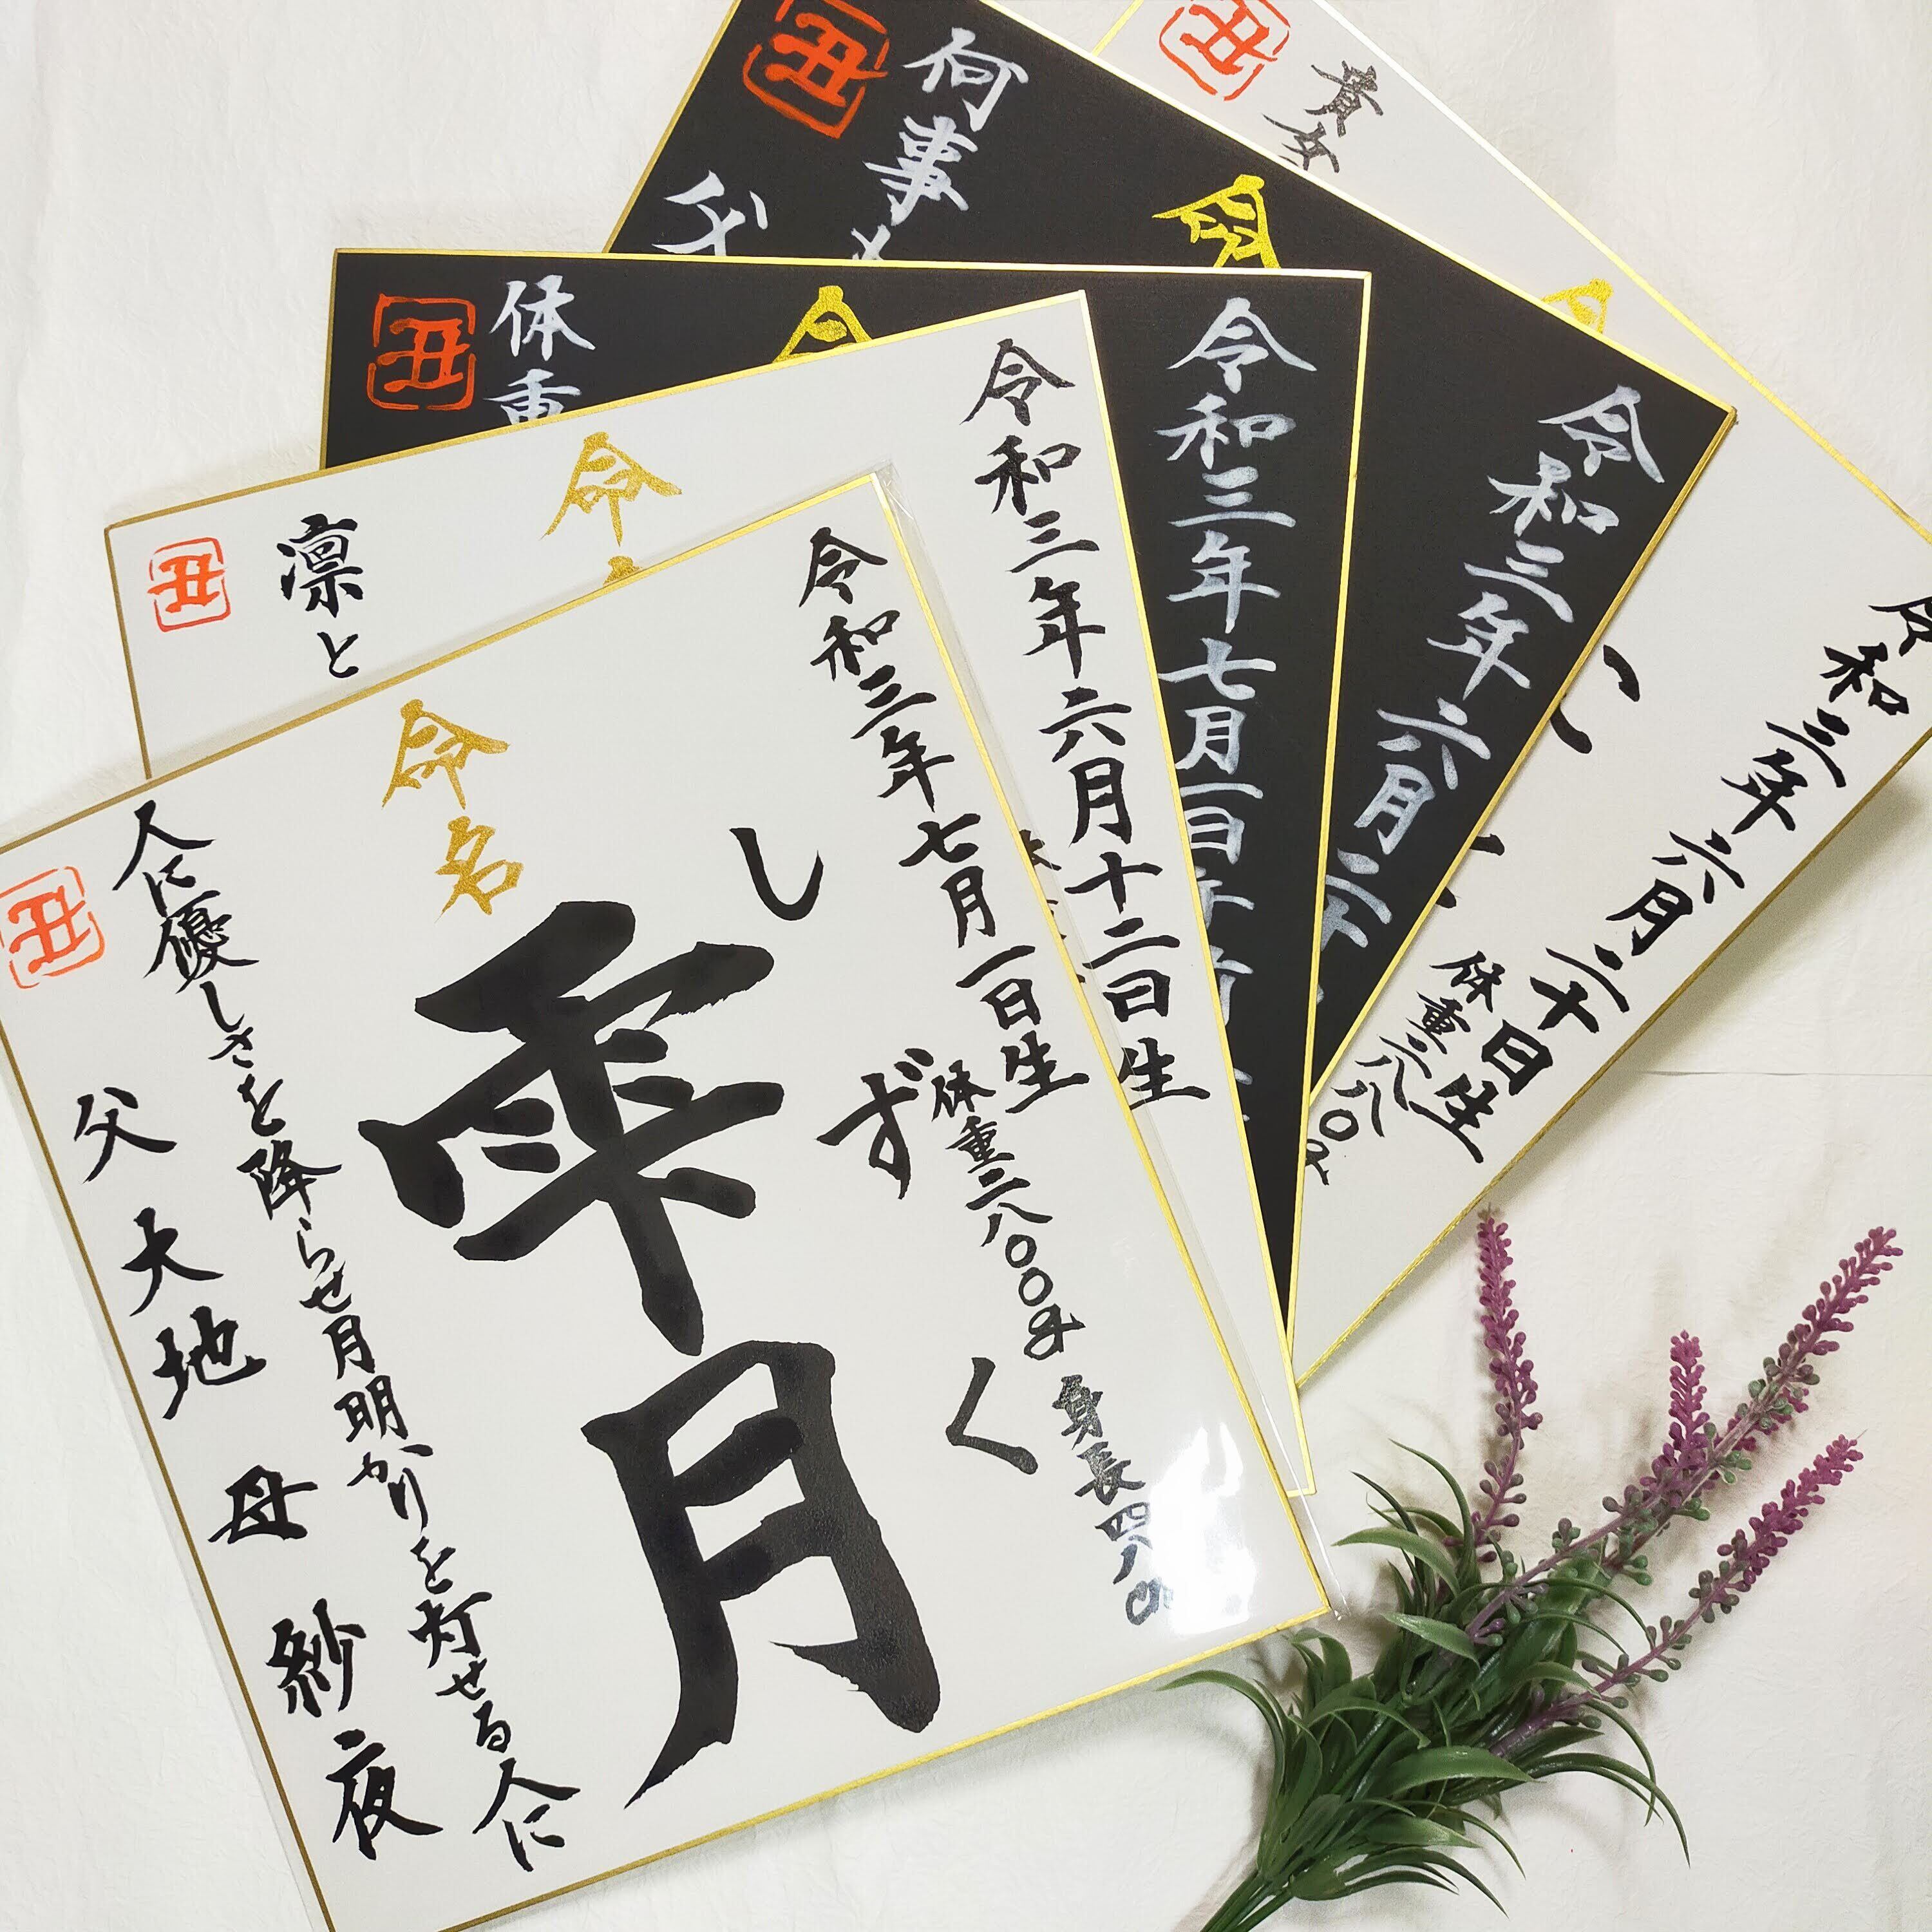 令和三年七月一日生
体重二八〇〇g 身長四八cm
しずく
命名
雫月
人に優しさを降らせ月明かりを灯せる人に
父 大地 母 紗夜
丑
令和三年六月十二日生
命
凛と
丑
令和三年七月一日午前
体重
丑
令和三年六月二十
命
何事
父
丑
令和三年六月二十日生
体重二八八〇g
丑